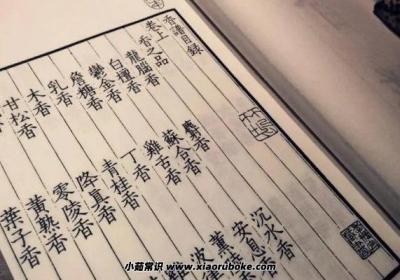 香譜目録
卷上
香之品
龍腦香 麝香 沉水香
白檀香 蘇合香 安息香
鬱金香 雞舌香 薰
詹糖香 丁香 波律
乳香 青桂香
木香 降真香
甘松香 零陵香
黄熟香
葉子香
小茹常识 www.xiaoruboke.com